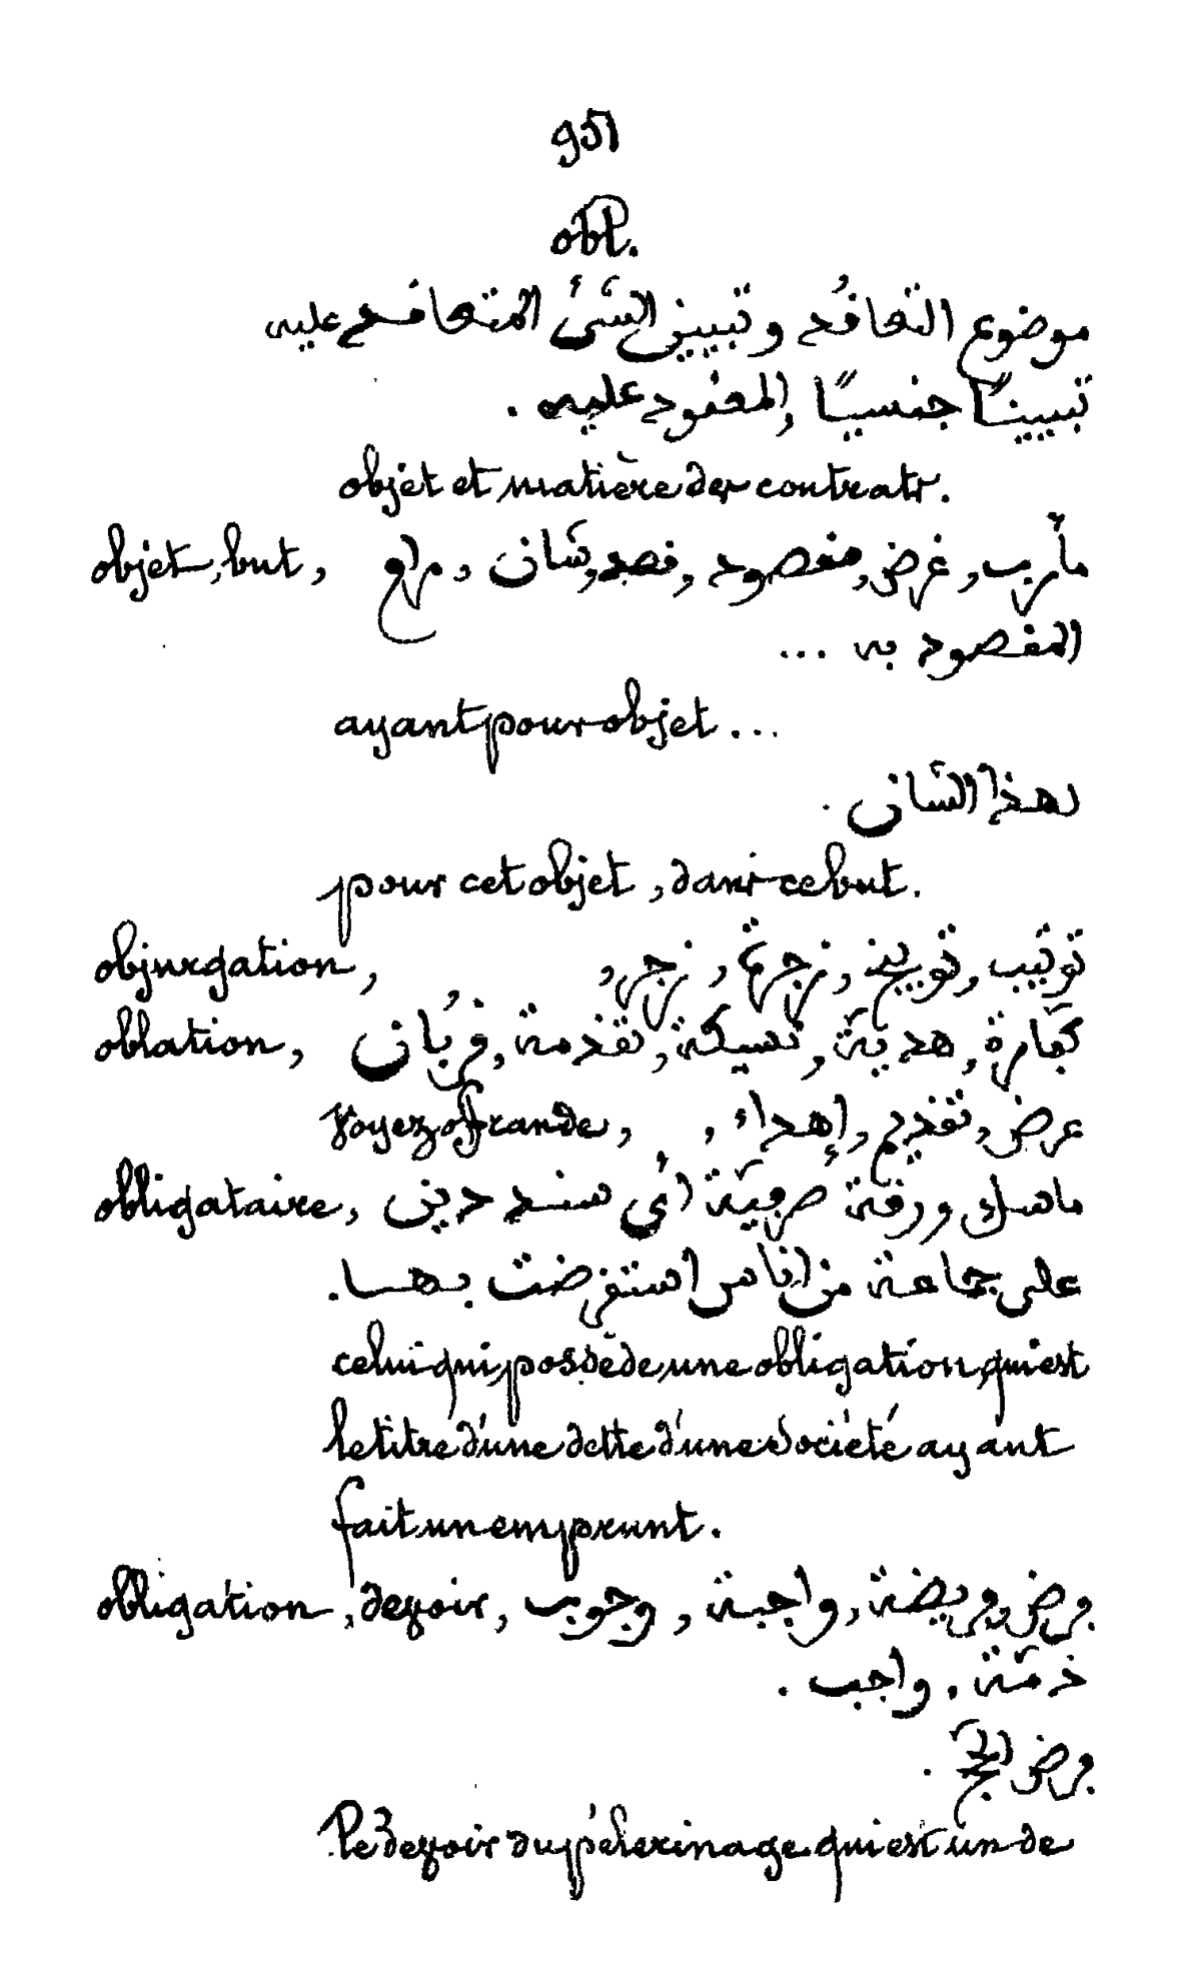 951
obl.
موضوع التعاقُد وتبيين الشّىْ المتعاقد عليه
تبيينًا جنسيًا والمعقود عليه .
objet et matière des contrats.
objet, but, مأرب, غرض, مقصود, قصد, شان, مراع
المقصود به ...
ayant pour objet ...
لهذا الشان .
pour cet objet, dans ce but.
objurgation, توثيب, توبيخ, زجرة, زجر,
oblation, كفّارة, هديّة, نسيكة, تقدمة, قُربان
عرض, تقديم, إهداء, voyez offrande,
obligataire, ماسك ورقة صرفيّة اىْ سند دين
على جماعة من اناس استقرضت بها.
celui qui possède une obligation, qui est
le titre d'une dette d'une société ayant
fait un emprunt.
obligation, devoir, فرض, فريضة, واجبة, وجوب
ذمّة, واجب .
فرض الحجّ .
Le devoir du pélerinage qui est un de